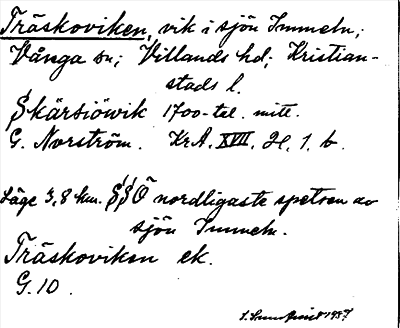 Träskoviken, vik i sjön Immeln;
Vånga sn; Villands hd; Kristian-
stads l.
Skärsiöwik 1700-tal. mitt.
G. Norström. KrA. XVII. H. 1. b.
Läge 3,8 km. SSÖ nordligaste spetsen av
sjön Immeln.
Träskoviken ek.
G. 10.
1937